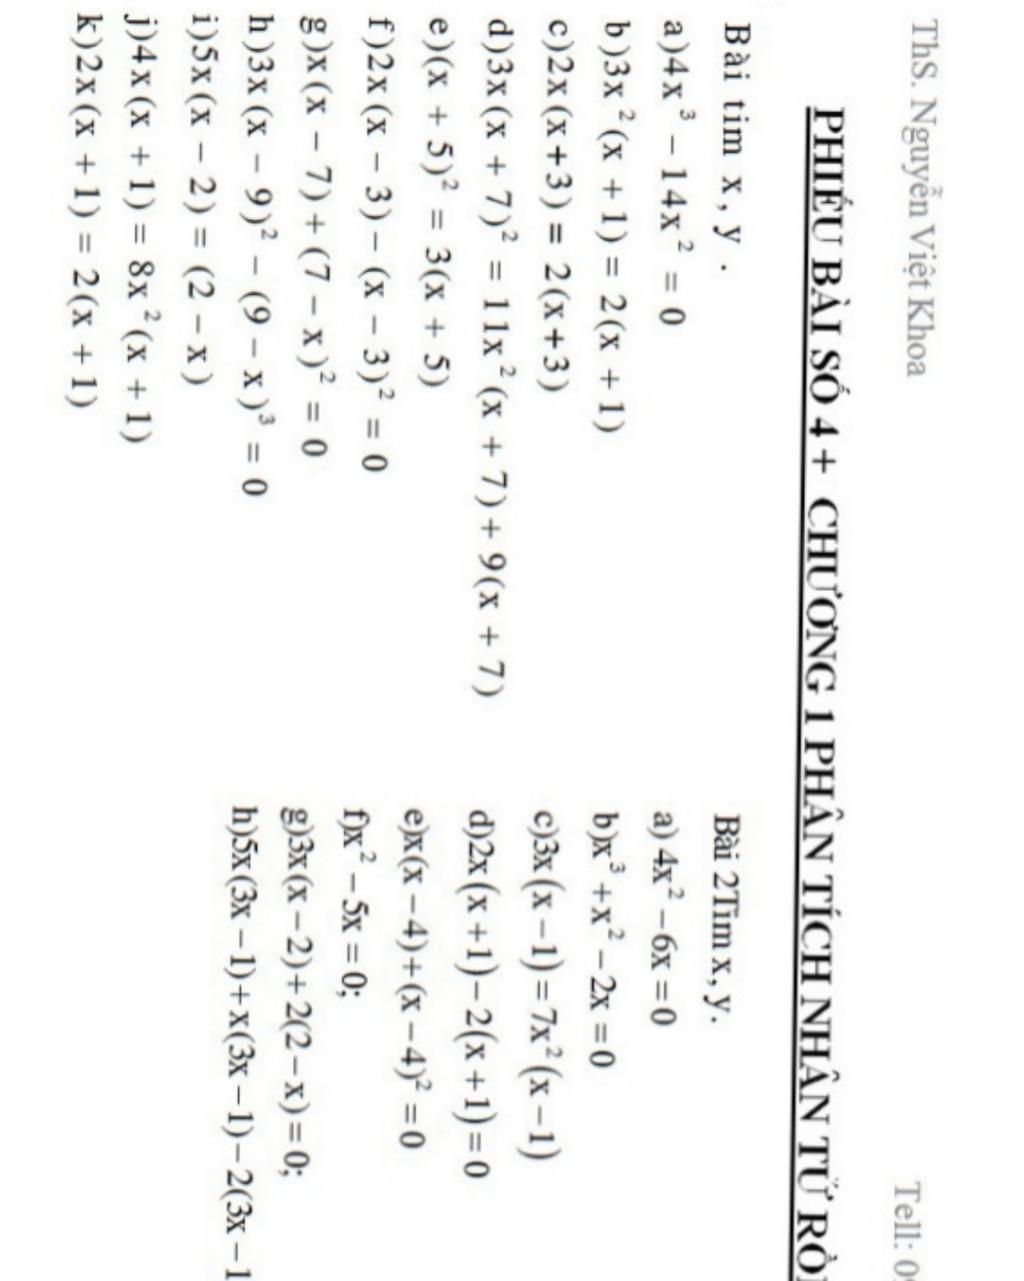 ThS. Nguyễn Việt Khoa
Tell: 0
PHIẾU BÀI SỐ 4 + CHƯƠNG 1 PHÂN TÍCH NHÂN TỬ
Bài tim x, y .
a)4x³ − 14x² = 0
b)3x²(x + 1) = 2(x + 1)
c)2x(x+3) = 2(x+3)
d)3x(x + 7)² = 11x²(x + 7) + 9(x + 7)
e)(x + 5)² = 3(x + 5)
f)2x(x − 3) − (x − 3)² = 0
g)x(x − 7) + (7 − x)² = 0
h)3x(x − 9)² − (9 − x)³ = 0
i)5x(x − 2) = (2 − x)
j)4x(x + 1) = 8x²(x + 1)
k)2x(x + 1) = 2(x + 1)
Bài 2Tim x, y.
a) 4x² − 6x = 0
b)x³ + x² − 2x = 0
c)3x(x − 1) = 7x²(x − 1)
d)2x(x + 1) − 2(x + 1) = 0
e)x(x − 4) + (x − 4)² = 0
f)x² − 5x = 0;
g)3x(x − 2) + 2(2 − x) = 0;
h)5x(3x − 1) + x(3x − 1) − 2(3x − 1